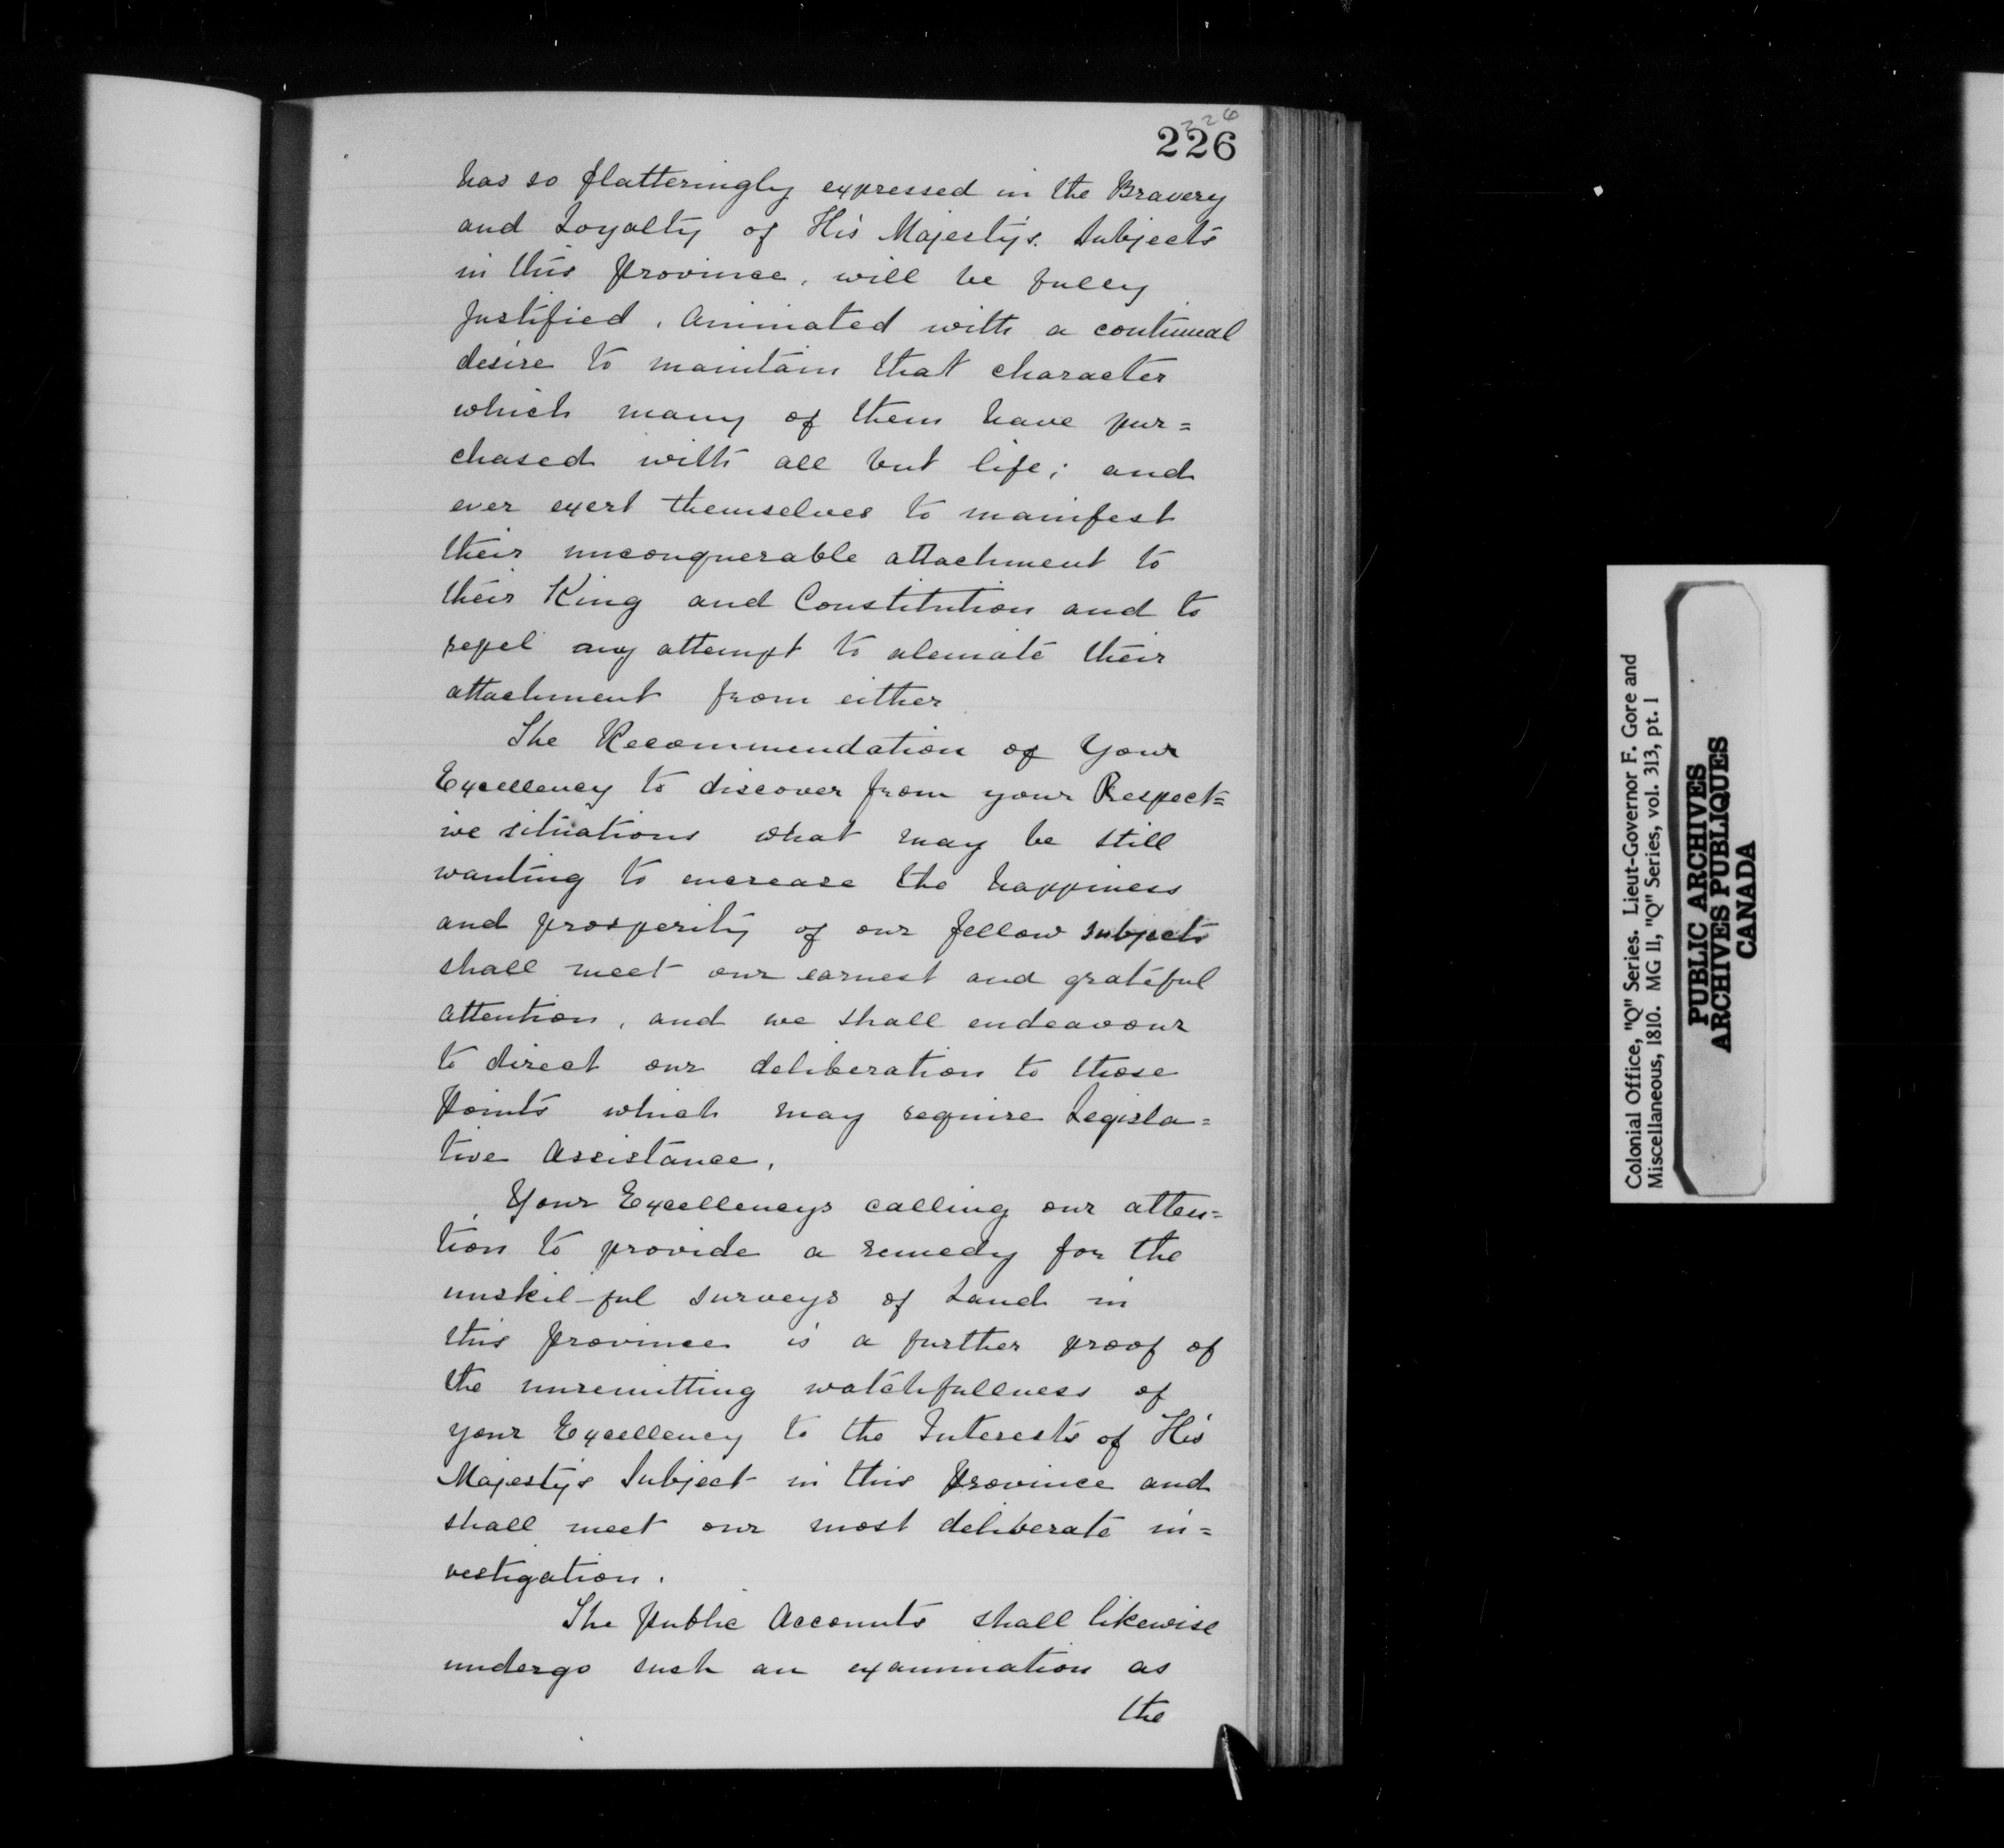 326
226
has so flatteringly expressed in the Bravery
and Loyalty of His Majesty's Subjects
in this Province, will be fully
Justified. Animated with a continual
desire to maintain that character
which many of them have pur=
chased with all but life; and
ever exert themselves to manifest
their unconquerable attachment to
their King and Constitution and to
repel any attempt to alienate their
attachment from either
The Recommendation of Your
Excellency to discover from your Respect=
ive situations what may be still
wanting to encrease the happiness
and prosperity of our fellow subjects
shall meet our earnest and grateful
attention, and we shall endeavour
to direct our deliberation to those
Points which may require Legisla=
tive Assistance.
Your Excellencys calling our atten=
tion to provide a remedy for the
unskil-ful surveys of Land in
this Province is a further proof of
the unremitting watchfullness of
your Excellency to the Interests of His
Majesty's Subject in this Province and
shall meet our most deliberate in=
vestigation.
The Public Accounts shall likewise
undergo such an examination as
the
Colonial Office, "Q" Series. Lieut-Governor F. Gore and
Miscellaneous, 1810. MG 11, "Q" Series, vol. 313, pt. 1
PUBLIC ARCHIVES
ARCHIVES PUBLIQUES
CANADA